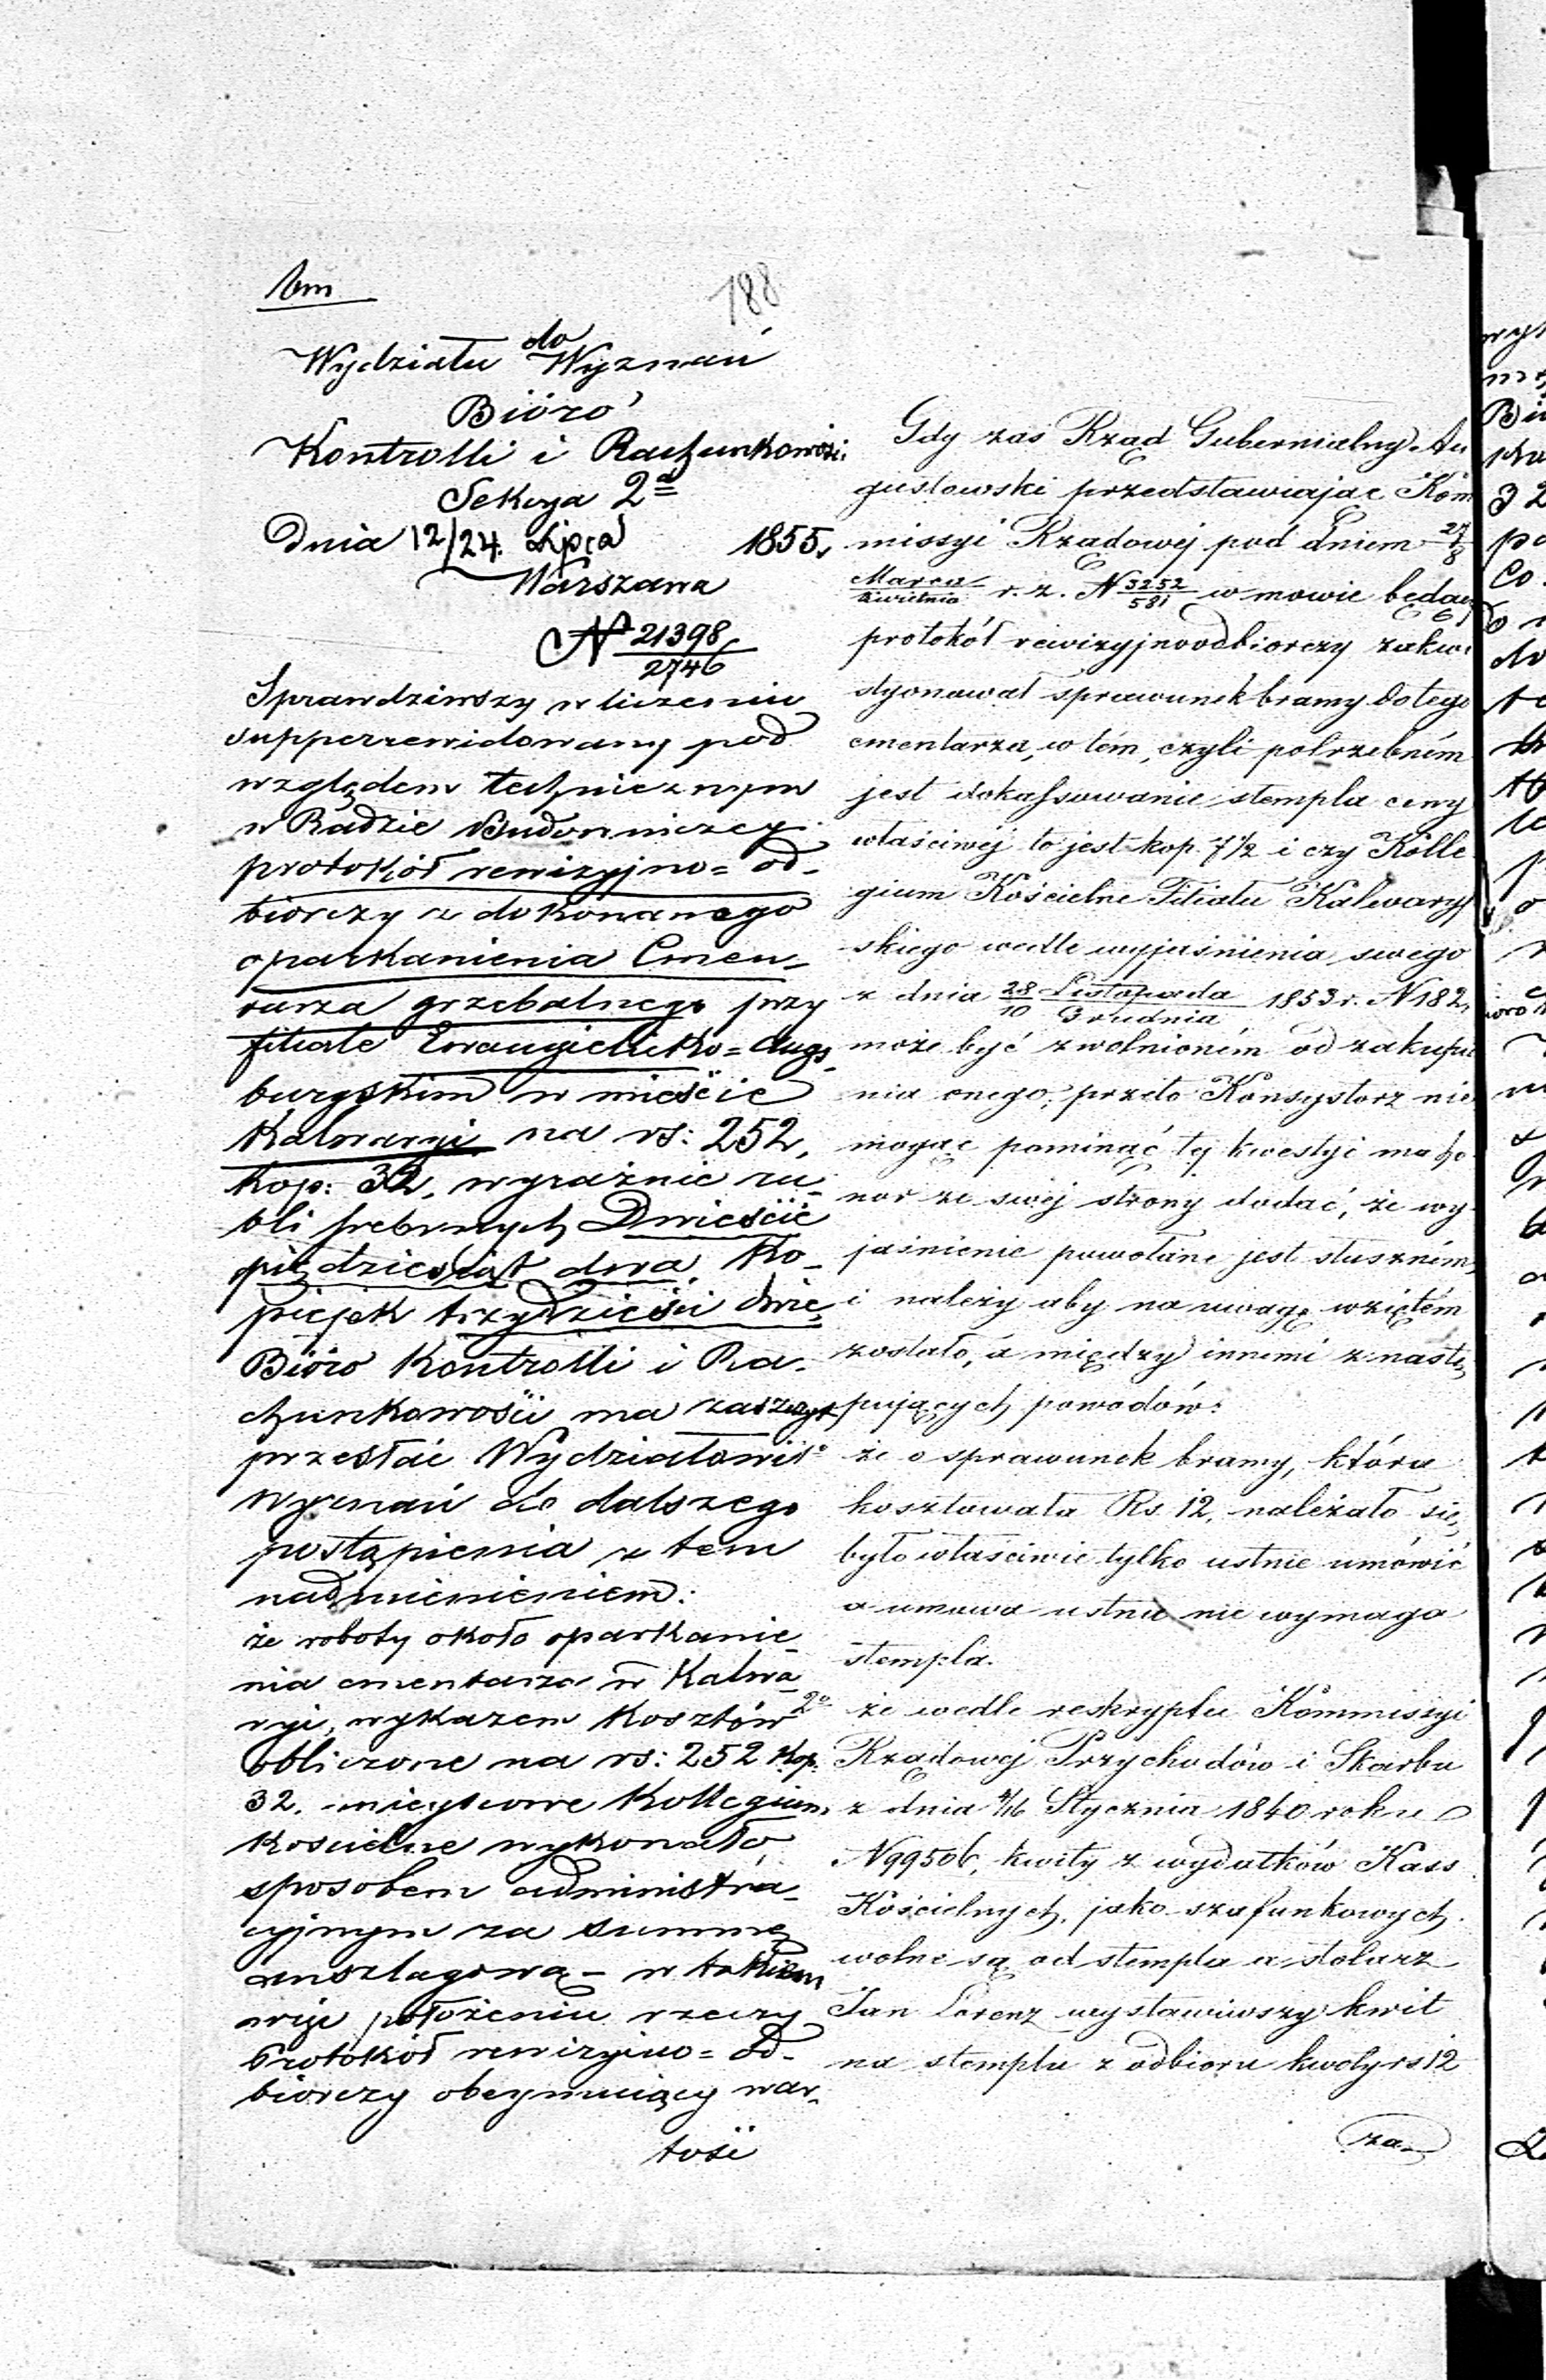 188
do
Wydziału Wyznań
Bióro
Kontrolli i Rachunkowości
Sekcya 2a
Dnia 12/24. Lipca 1855.
Warszawa
N 21398/2746
Sprawdziwszy w liczeniu
supperrewidowany pod
względem technicznym
w Radzie Budowniczey
protokół rewizyjno=od-
biorczy z dokonanego
oparkanienia Cmen-
tarza grzebalnego przy
filiale Ewangielicko=Augs-
burgskim w mieście
Kalwaryi na rs: 252,
kop: 32, wyraźnie ru-
bli srebrnych Dwieście
pięćdziesiąt dwa, ko-
piejek trzydzieści dwie,
Bióro Kontrolli i Ra-
chunkowości ma zaszczyt
przesłać Wydziałowi
Wyznań do dalszego
postąpienia z tem
nadmienieniem:
że roboty około oparkanie-
nia cmentarza w Kalwa-
ryi, wykazem kosztów
obliczone na rs: 252 kop.
32. mieyscowe Kollegium
Kościelne wykonało
sposobem administra-
cyjnym za summę
anszlagową - w takiem
więc położeniu rzeczy
Protokół rewizyjno=od-
biorczy obeymuiący war-
tość
Gdy zaś Rząd Gubernialny Au
gustowski przedstawiając Kom
missyi Rządowéj pod dniem 27/8
Marca/Kwietnia r. z. N 3252/581 w mowie będący
protokół rewizyjnoodbiorczy zakwe
styonował sprawunek bramy do tego
cmentarza, w tém, czyli potrzebném
jest dokassowanie stempla ceny
właściwéj to jest kop. 7 1/2 i czy Kolle
gium Kościelne Filiału Kalwaryj
skiego wedle wyjaśnienia swego
z dnia 28/10 Listopada/Grudnia 1853 r. N 182,
może być zwolnioném od zakupie
nia onego; przeto Konsystorz nie
mogąc pominąć téj kwestyi ma ho-
nor ze swéj strony dodać, że wy-
jaśnienie powołane jest słuszném,
i należy aby na uwagę wziętém
zostało, a między innemi z nastę-
pujących powodów:
1o że o sprawunek bramy, która
kosztowała Rs 12, należało się
było właściwie tylko ustnie umówić
a umowa ustna nie wymaga
stempla.
2o że wedle reskryptu Kommiszyi
Rządowej Przychodów i Skarbu
z dnia 4/16 Stycznia 1840 roku
N 99506, kwity z wydatków Kass
Kościelnych, jako szafunkowych
wolne są od stempla a stolarz
Jan Lorenz wystawiwszy kwit
na stemplu z odbioru kwoty rs 12
za-